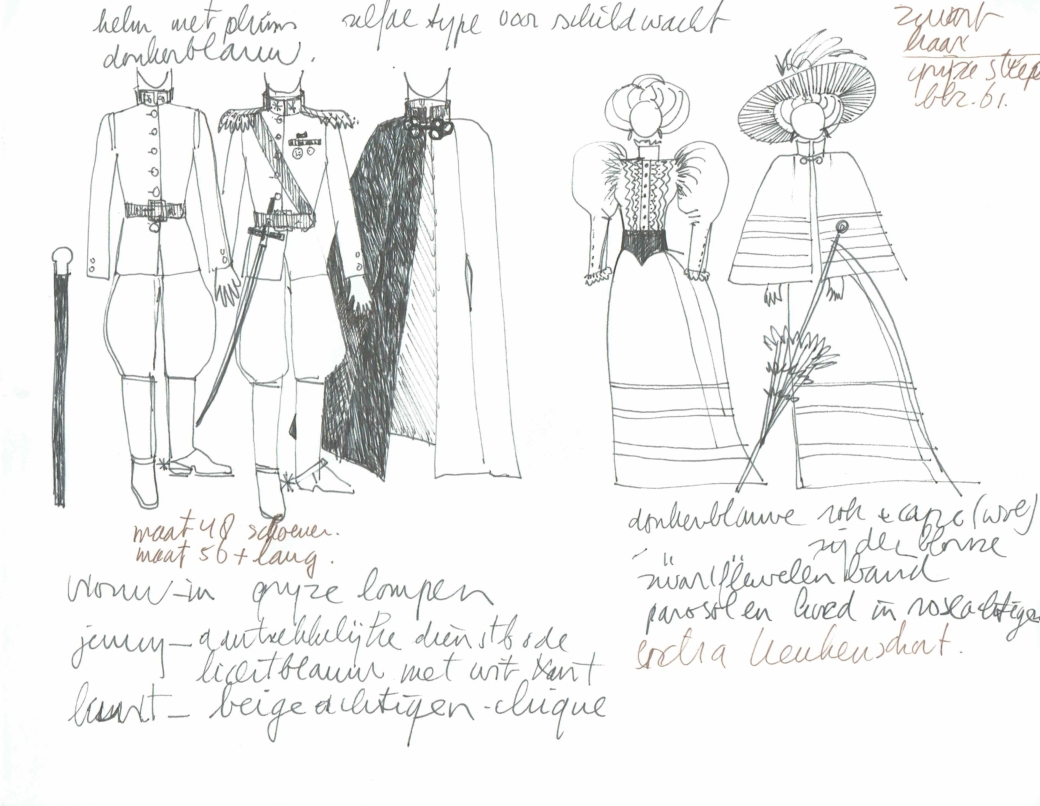 helm met pluim
donkerblauw.
zelfde type voor schildwacht
zwart
haar
grijze
blz. 61.
maat 48 schoenen.
maat 56 + lang.
vrouw in grijze lompen
jenny - aantrekkelijke dienstbode
lichtblauw met wit kant
- beigeachtigen - chique
donkerblauwe rok + cape (wol)
zijden blouse
zwart fluwelen band
parasol en hoed in
extra keukenschort.